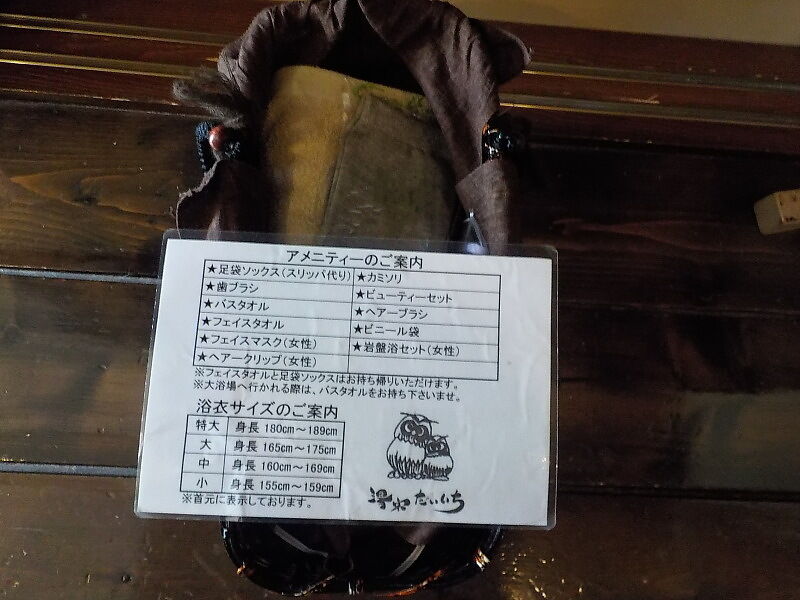 アメニティーのご案内
★足袋ソックス(スリッパ代り) ★カミソリ
★歯ブラシ ★ビューティーセット
★バスタオル ★ヘアーブラシ
★フェイスタオル ★ビニール袋
★フェイスマスク(女性) ★岩盤浴セット(女性)
★ヘアークリップ(女性)
※フェイスタオルと足袋ソックスはお持ち帰りいただけます。
※大浴場へ行かれる際は、バスタオルをお持ち下さいませ。
浴衣サイズのご案内
特大 身長 180cm~189cm
大 身長 165cm~175cm
中 身長 160cm~169cm
小 身長 155cm~159cm
※首元に表示しております。
湯宿だいいち